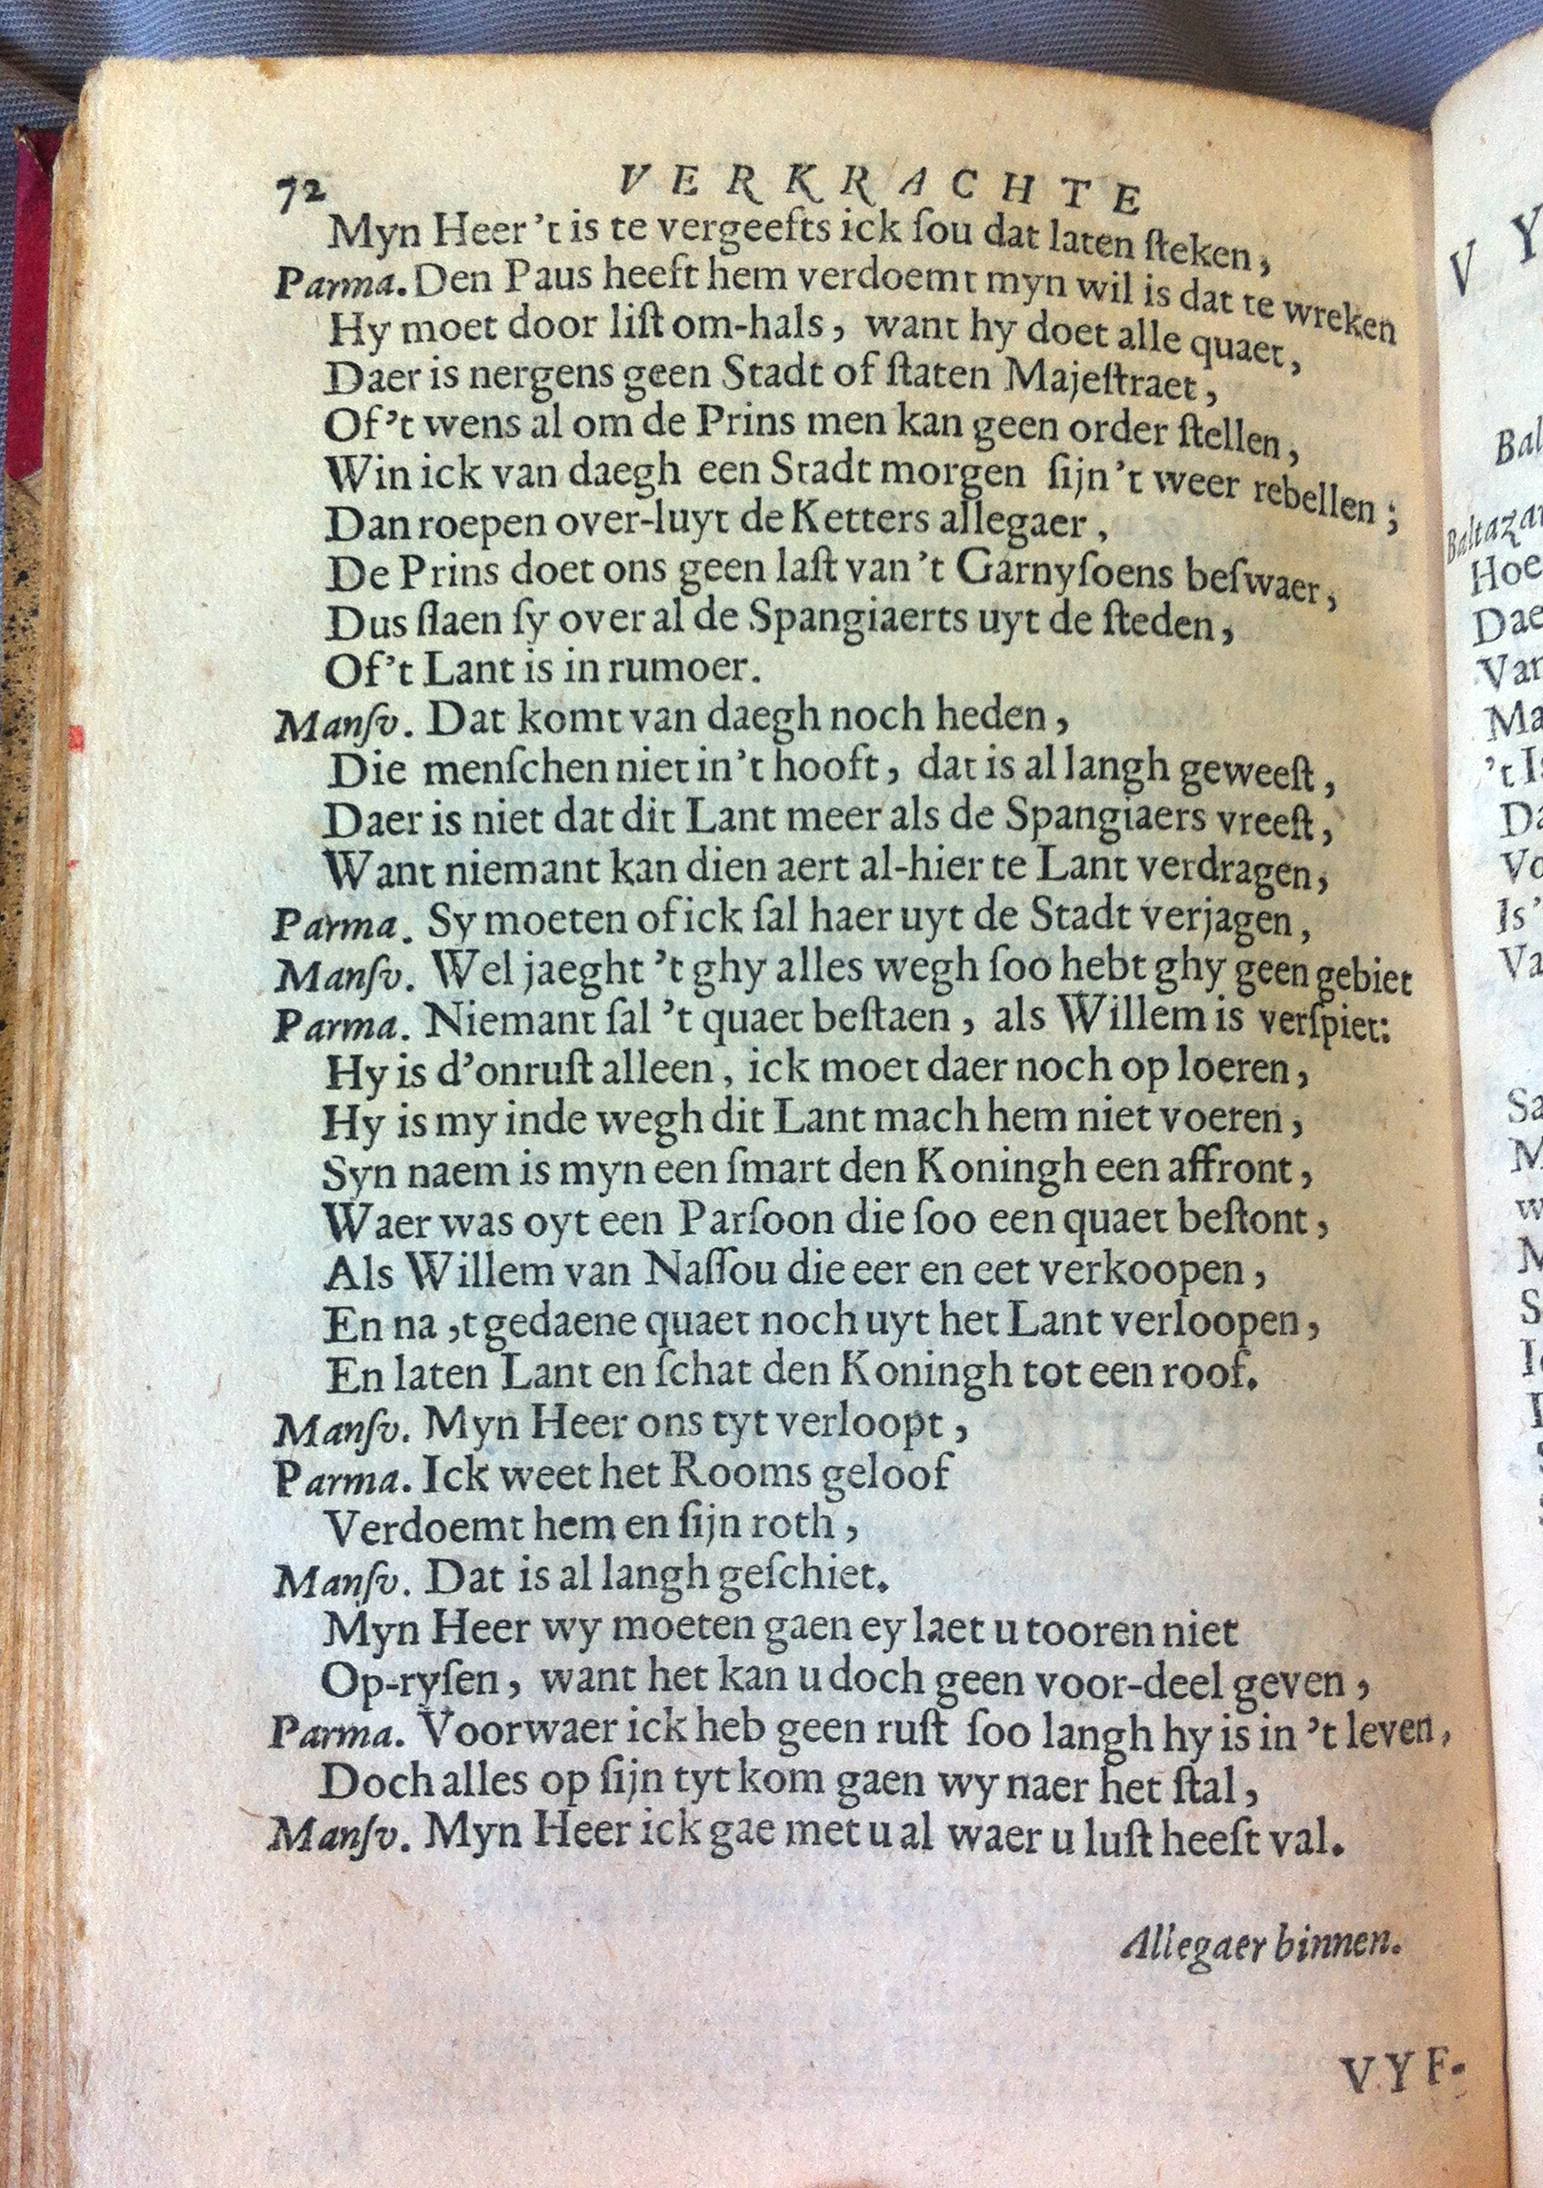 72 VERKRACHTE
Myn Heer 't is te vergeefts ick ſou dat laten ſteken,
Parma. Den Paus heeft hem verdoemt myn wil is dat te wreken
Hy moet door liſt om-hals, want hy doet alle quaet,
Daer is nergens geen Stadt of ſtaten Majeſtraet,
Of 't wens al om de Prins men kan geen order ſtellen,
Win ick van daegh een Stadt morgen ſijn 't weer rebellen;
Dan roepen over-luyt de Ketters allegaer,
De Prins doet ons geen laſt van 't Garnyſoens beſwaer,
Dus ſlaen ſy over al de Spangiaerts uyt de ſteden,
Of 't Lant is in rumoer.
Manſv. Dat komt van daegh noch heden,
Die menſchen niet in 't hooft, dat is al langh geweeſt,
Daer is niet dat dit Lant meer als de Spangiaers vreeſt,
Want niemant kan dien aert al-hier te Lant verdragen,
Parma. Sy moeten of ick ſal haer uyt de Stadt verjagen,
Manſv. Wel jaeght 't ghy alles wegh ſoo hebt ghy geen gebiet
Parma. Niemant ſal 't quaet beſtaen, als Willem is verſpiet:
Hy is d'onruſt alleen, ick moet daer noch op loeren,
Hy is my inde wegh dit Lant mach hem niet voeren,
Syn naem is myn een ſmart den Koningh een affront,
Waer was oyt een Parſoon die ſoo een quaet beſtont,
Als Willem van Naſſou die eer en eet verkoopen,
En na ,t gedaene quaet noch uyt het Lant verloopen,
En laten Lant en ſchat den Koningh tot een roof.
Manſv. Myn Heer ons tyt verloopt,
Parma. Ick weet het Rooms geloof
Verdoemt hem en ſijn roth,
Manſv. Dat is al langh geſchiet.
Myn Heer wy moeten gaen ey laet u tooren niet
Op-ryſen, want het kan u doch geen voor-deel geven,
Parma. Voorwaer ick heb geen ruſt ſoo langh hy is in 't leven,
Doch alles op ſijn tyt kom gaen wy naer het ſtal,
Manſv. Myn Heer ick gae met u al waer u luſt heeft val.
Allegaer binnen.
VYF-
V Y
Bal
Baltazar
Hoe
Dae
Van
Ma
't Is
Da
Vo
Is '
Va
Sa
M
w
M
S